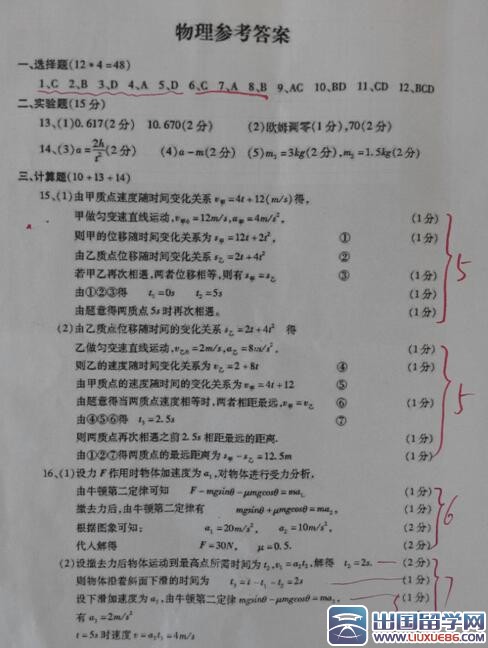 物理参考答案
一、选择题(12*4=48)
1、C 2、B 3、D 4、A 5、D 6、C 7、A 8、B 9、AC 10、BD 11、CD 12、BCD
二、实验题(15分)
13、(1)0.617(2分) 10.670(2分) (2)欧姆调零(1分),70(2分)
14、(3)a=2h/t²(2分) (4)a-m(2分) (5)m₁=3kg(2分),m₂=1.5kg(2分)
三、计算题(10+13+14)
15、(1)由甲质点速度随时间变化关系v甲=4t+12(m/s)得,
甲做匀变速直线运动,v甲0=12m/s,a甲=4m/s², (1分)
则甲的位移随时间变化关系为s甲=12t+2t², ① (1分)
由乙质点位移随时间变化关系s乙=2t+4t² ②
若甲乙再次相遇,两者位移相等,则有s甲=s乙 ③ (1分)
由①②③得 t₁=0s t₂=5s (1分)
由题意得两质点5s时再次相遇。 (1分)
5
(2)由乙质点位移随时间的变化关系s乙=2t+4t² 得
乙做匀变速直线运动,v乙0=2m/s,a乙=8m/s². (1分)
则乙的速度随时间变化关系为v乙=2+8t ④ (1分)
由甲质点的速度随时间的变化关系为v甲=4t+12 ⑤
由题意得当两质点速度相等时,两者相距最远,v甲=v乙 ⑥ (1分)
由④⑤⑥得 t₃=2.5s ⑦
则两质点再次相遇之前2.5s相距最远的距离. (1分)
由①②⑦得两质点的最远距离为s甲-s乙=12.5m (1分)
5
16、(1)设力F作用时物体加速度为a₁,对物体进行受力分析,
由牛顿第二定律可知 F-mgsinθ-μmgcosθ=ma₁ (1分)
撤去力后,由牛顿第二定律有 mgsinθ+μmgcosθ=ma₂, (1分)
根据图象可知: a₁=20m/s², a₂=10m/s², (2分)
代人解得 F=30N, μ=0.5. (2分)
6
(2)设撤去力后物体运动到最高点所需时间为t₂,v₁=a₂t₂,解得 t₂=2s. (2分)
则物体沿着斜面下滑的时间为 t₃=t-t₁-t₂=2s (1分)
设下滑加速度为a₃,由牛顿第二定律mgsinθ-μmgcosθ=ma₃, (1分)
有a₃=2m/s²
t=5s时速度v=a₃t₃=4m/s
7
出国留学网
www.liuxue86.com